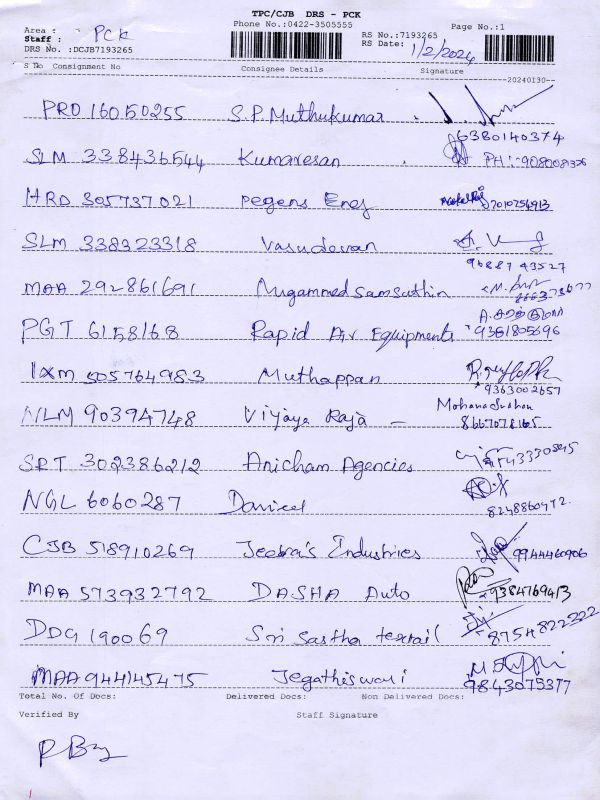 TPC/CJB DRS - PCK
Phone No.:0422-3505555
Area : PCK
Staff :
DRS No. :DCJB7193265
RS No.:7193265
RS Date: 1/2/2024
Page No.:1
S No Consignment No Consignee Details Signature
20240130
PRD 16050255 S.P. Muthukumar
6380140374
SLM 338436544 Kumaresan PH:-9080081326
HRD 305737021 Pegens Energ 7010754913
SLM 338323318 Vasudevan
96887 43527
MAA 292861691 Mugammedsamsuthin
PGT 6158168 Rapid Air Equipments 9361805696
IXM 505764983 Muthappan
9363002657
NLM 90394748 Vijaya Raja - 8667078165
SRT 302386212 Anicham Agencies
NGL 6060287 Daniel
8248860472.
CJB 518910269 Jeebra's Industries 9944460906
MAA 573932792 DASHA Auto 9384769413
DDG 190069 Sri Sastha texrail 8754822322
MAA 944145475 Jegathiswari 9843075377
Total No. Of Docs: Delivered Docs: Non Delivered Docs:
Verified By Staff Signature